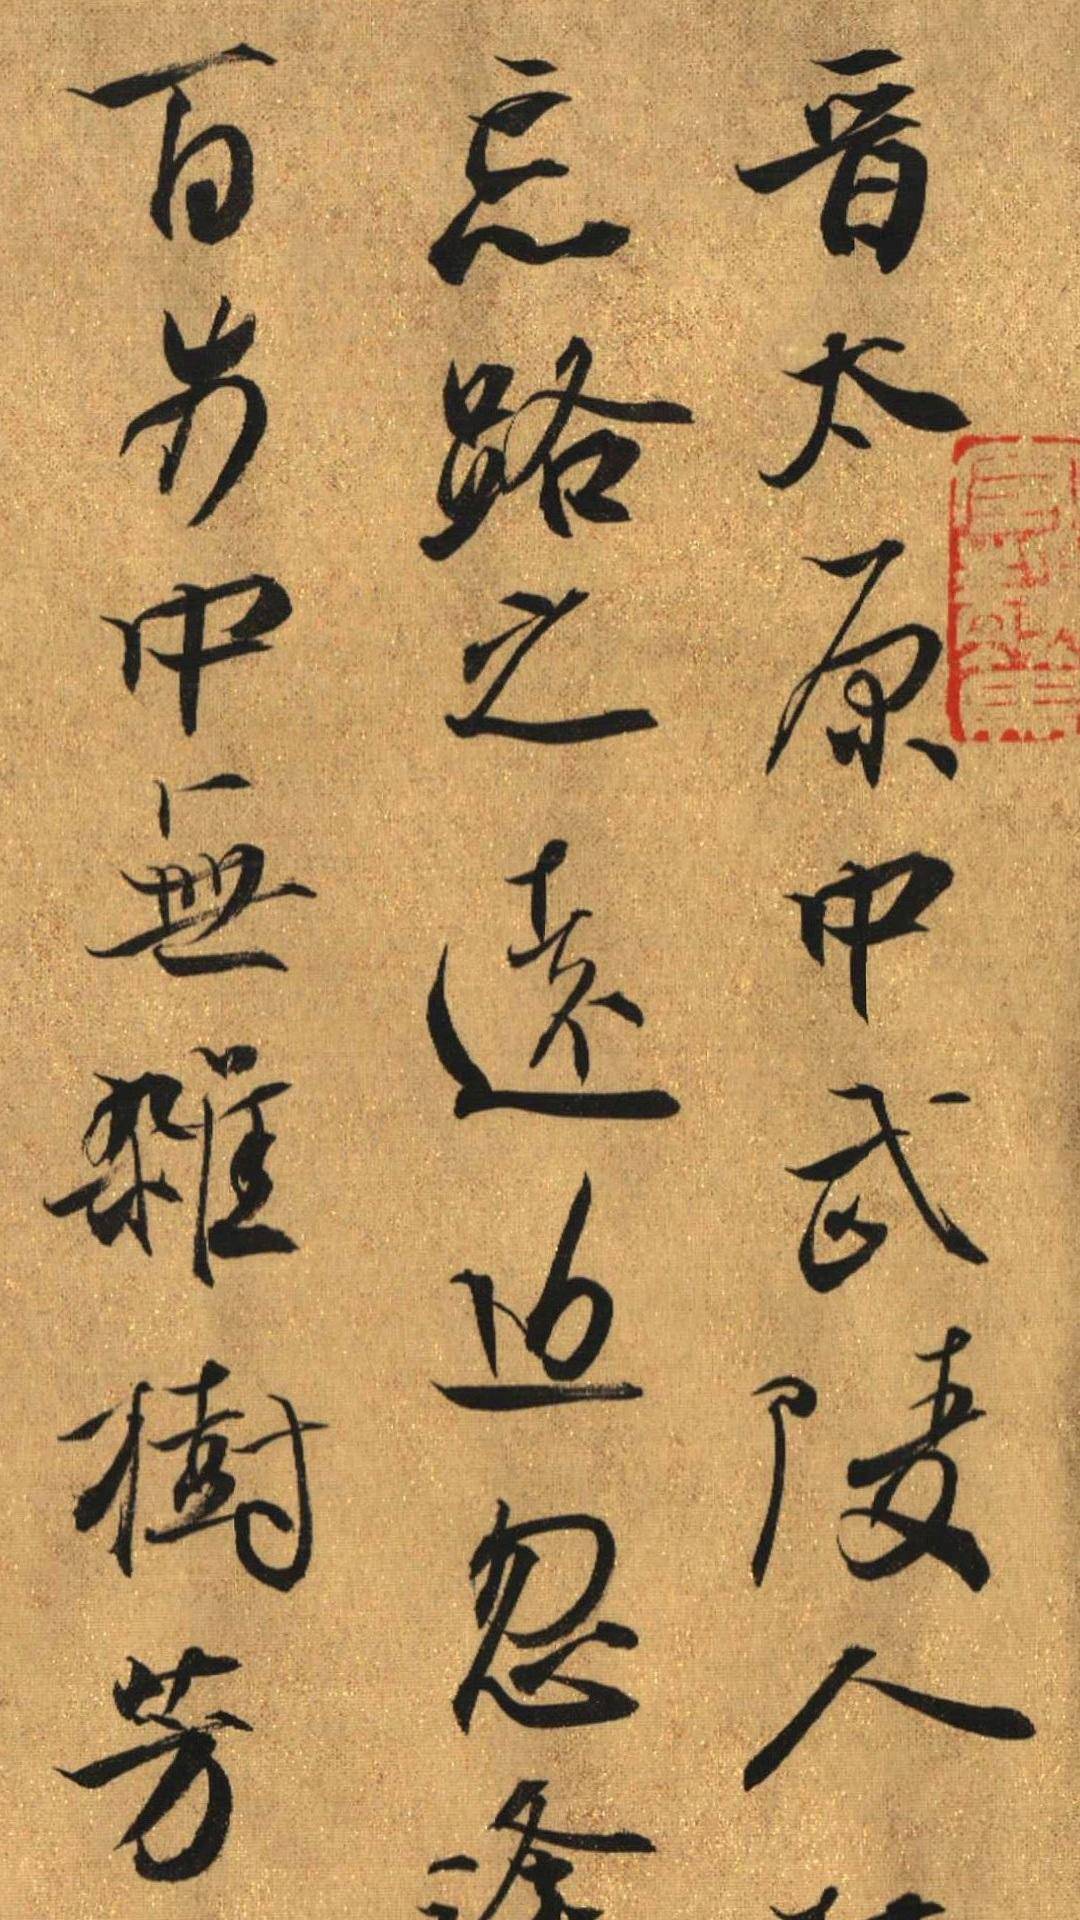 晉太原中武陵人
忘路之遠近忽逢
百步中無雜樹芳